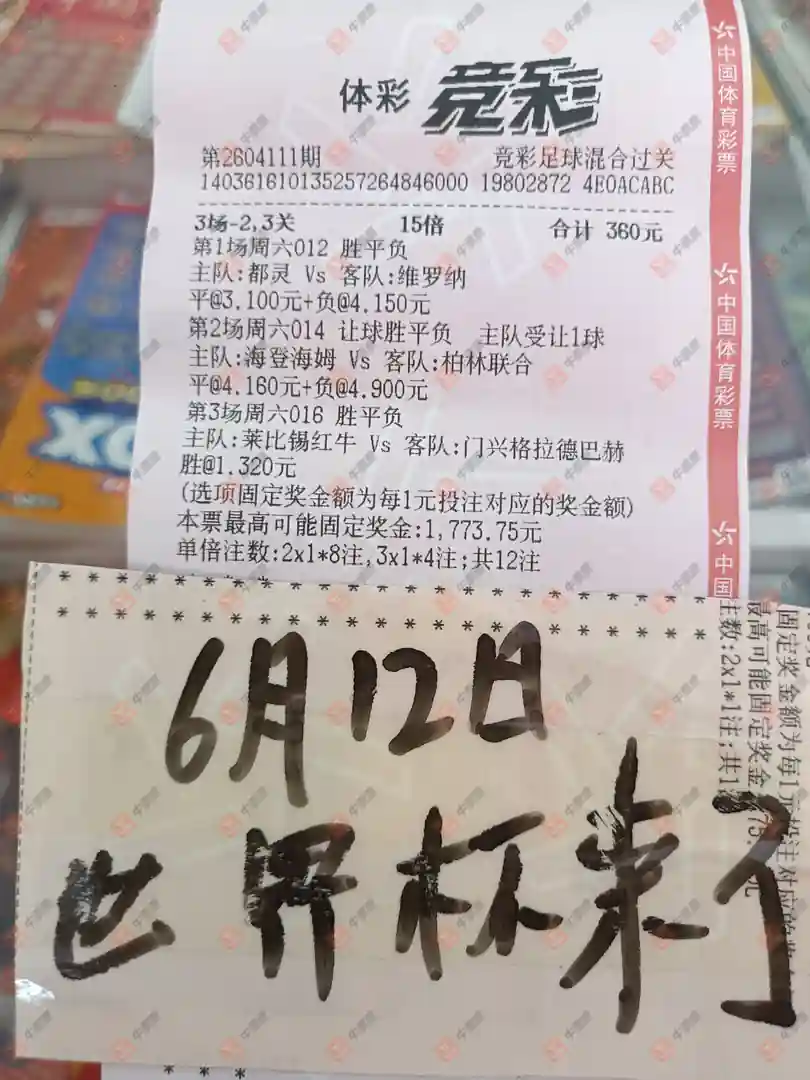 体彩 竞彩
第2604111期 竞彩足球混合过关
140361610135257264846000 19802872 4E0ACABC
3场-2,3关 15倍 合计 360元
第1场周六012 胜平负
主队:都灵 Vs 客队:维罗纳
平@3.100元+负@4.150元
第2场周六014 让球胜平负 主队受让1球
主队:海登海姆 Vs 客队:柏林联合
平@4.160元+负@4.900元
第3场周六016 胜平负
主队:莱比锡红牛 Vs 客队:门兴格拉德巴赫
胜@1.320元
(选项固定奖金额为每1元投注对应的奖金额)
本票最高可能固定奖金:1,773.75元
单倍注数:2x1*8注,3x1*4注;共12注
中国体育彩票
中国体育彩票
中国
固定奖金额为每1元投注对应的奖
最高可能固定奖金
注数:2x1*1注;共1
6月12日
世界杯来了